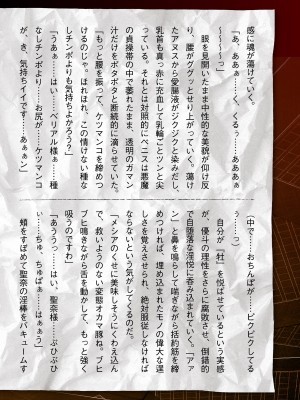 感に魂が蕩けていく。
「あ、あああぁ……く、くるぅ……あああぁ
～～～～っ」
　眼を見開いたまま中性的な美貌が仰け反
り、腰がググッとせり上がっていく。蕩け
たアヌスから愛腸液がジクジクと染みだし、
乳首も真っ赤に充血して乳輪ごとツンと尖
っている。それとは対照的にペニスは悪魔
の貞操帯の中で萎れたまま、透明のガマン
汁だけをポタポタと断続的に滴らせていた。
「もっと腰を振って、ケツマンコを締めつ
けるのじゃ。ほれほれ、この情けない種な
しチンポよりも気持ちよかろう？」
「うあぁ……はい……ベリアル様ぁ……種
なしチンポより……お尻が……ケツマンコ
が、き、気持ちイイです……あぁぁン」
（中で……おちんぽが……ピクピクしてる
ぅ……っ）
　自分が『牡』を悦ばせているという実感
が、優斗の理性をさらに腐敗させ、倒錯的
で自堕落な淫悦に呑み込まれていく。「アァ
ン」と鼻を鳴らして喘ぎながら括約筋を締
めつければ、埋め込まれたモノの偉大な逞
しさを覚えさせられ、絶対服従しなければ
ならないという気がしてくるのだ。
「メシアのくせに美味しそうにくわえ込ん
で、救いようのない変態オカマ豚ね。ブヒ
ブヒ鳴きながら舌を動かして、もっと強く
吸うのですわ」
「あうううっ……はい、聖奈様……ぶひぶひ
ぃ……ちゅ、ちゅぱぁ……はぁう」
　頬をすぼめて聖奈の淫棒をバキュームす